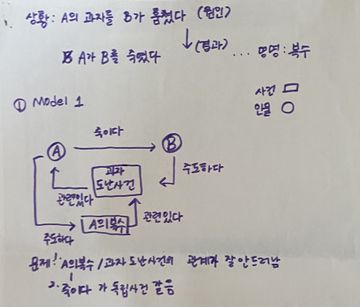 상황: A의 과자를 B가 훔쳤다 (원인)
↓(결과)
A가 B를 죽였다 ... 명명: 복수
사건 □
인물 ○
① Model 1
죽이다
A → B
과자
도난사건
주도하다
관련있다
관련있다
A의복수
주도하다
문제: 1. A의복수 / 과자 도난사건의 관계가 잘 안드러남
2. 죽이다 가 독립사건 같음